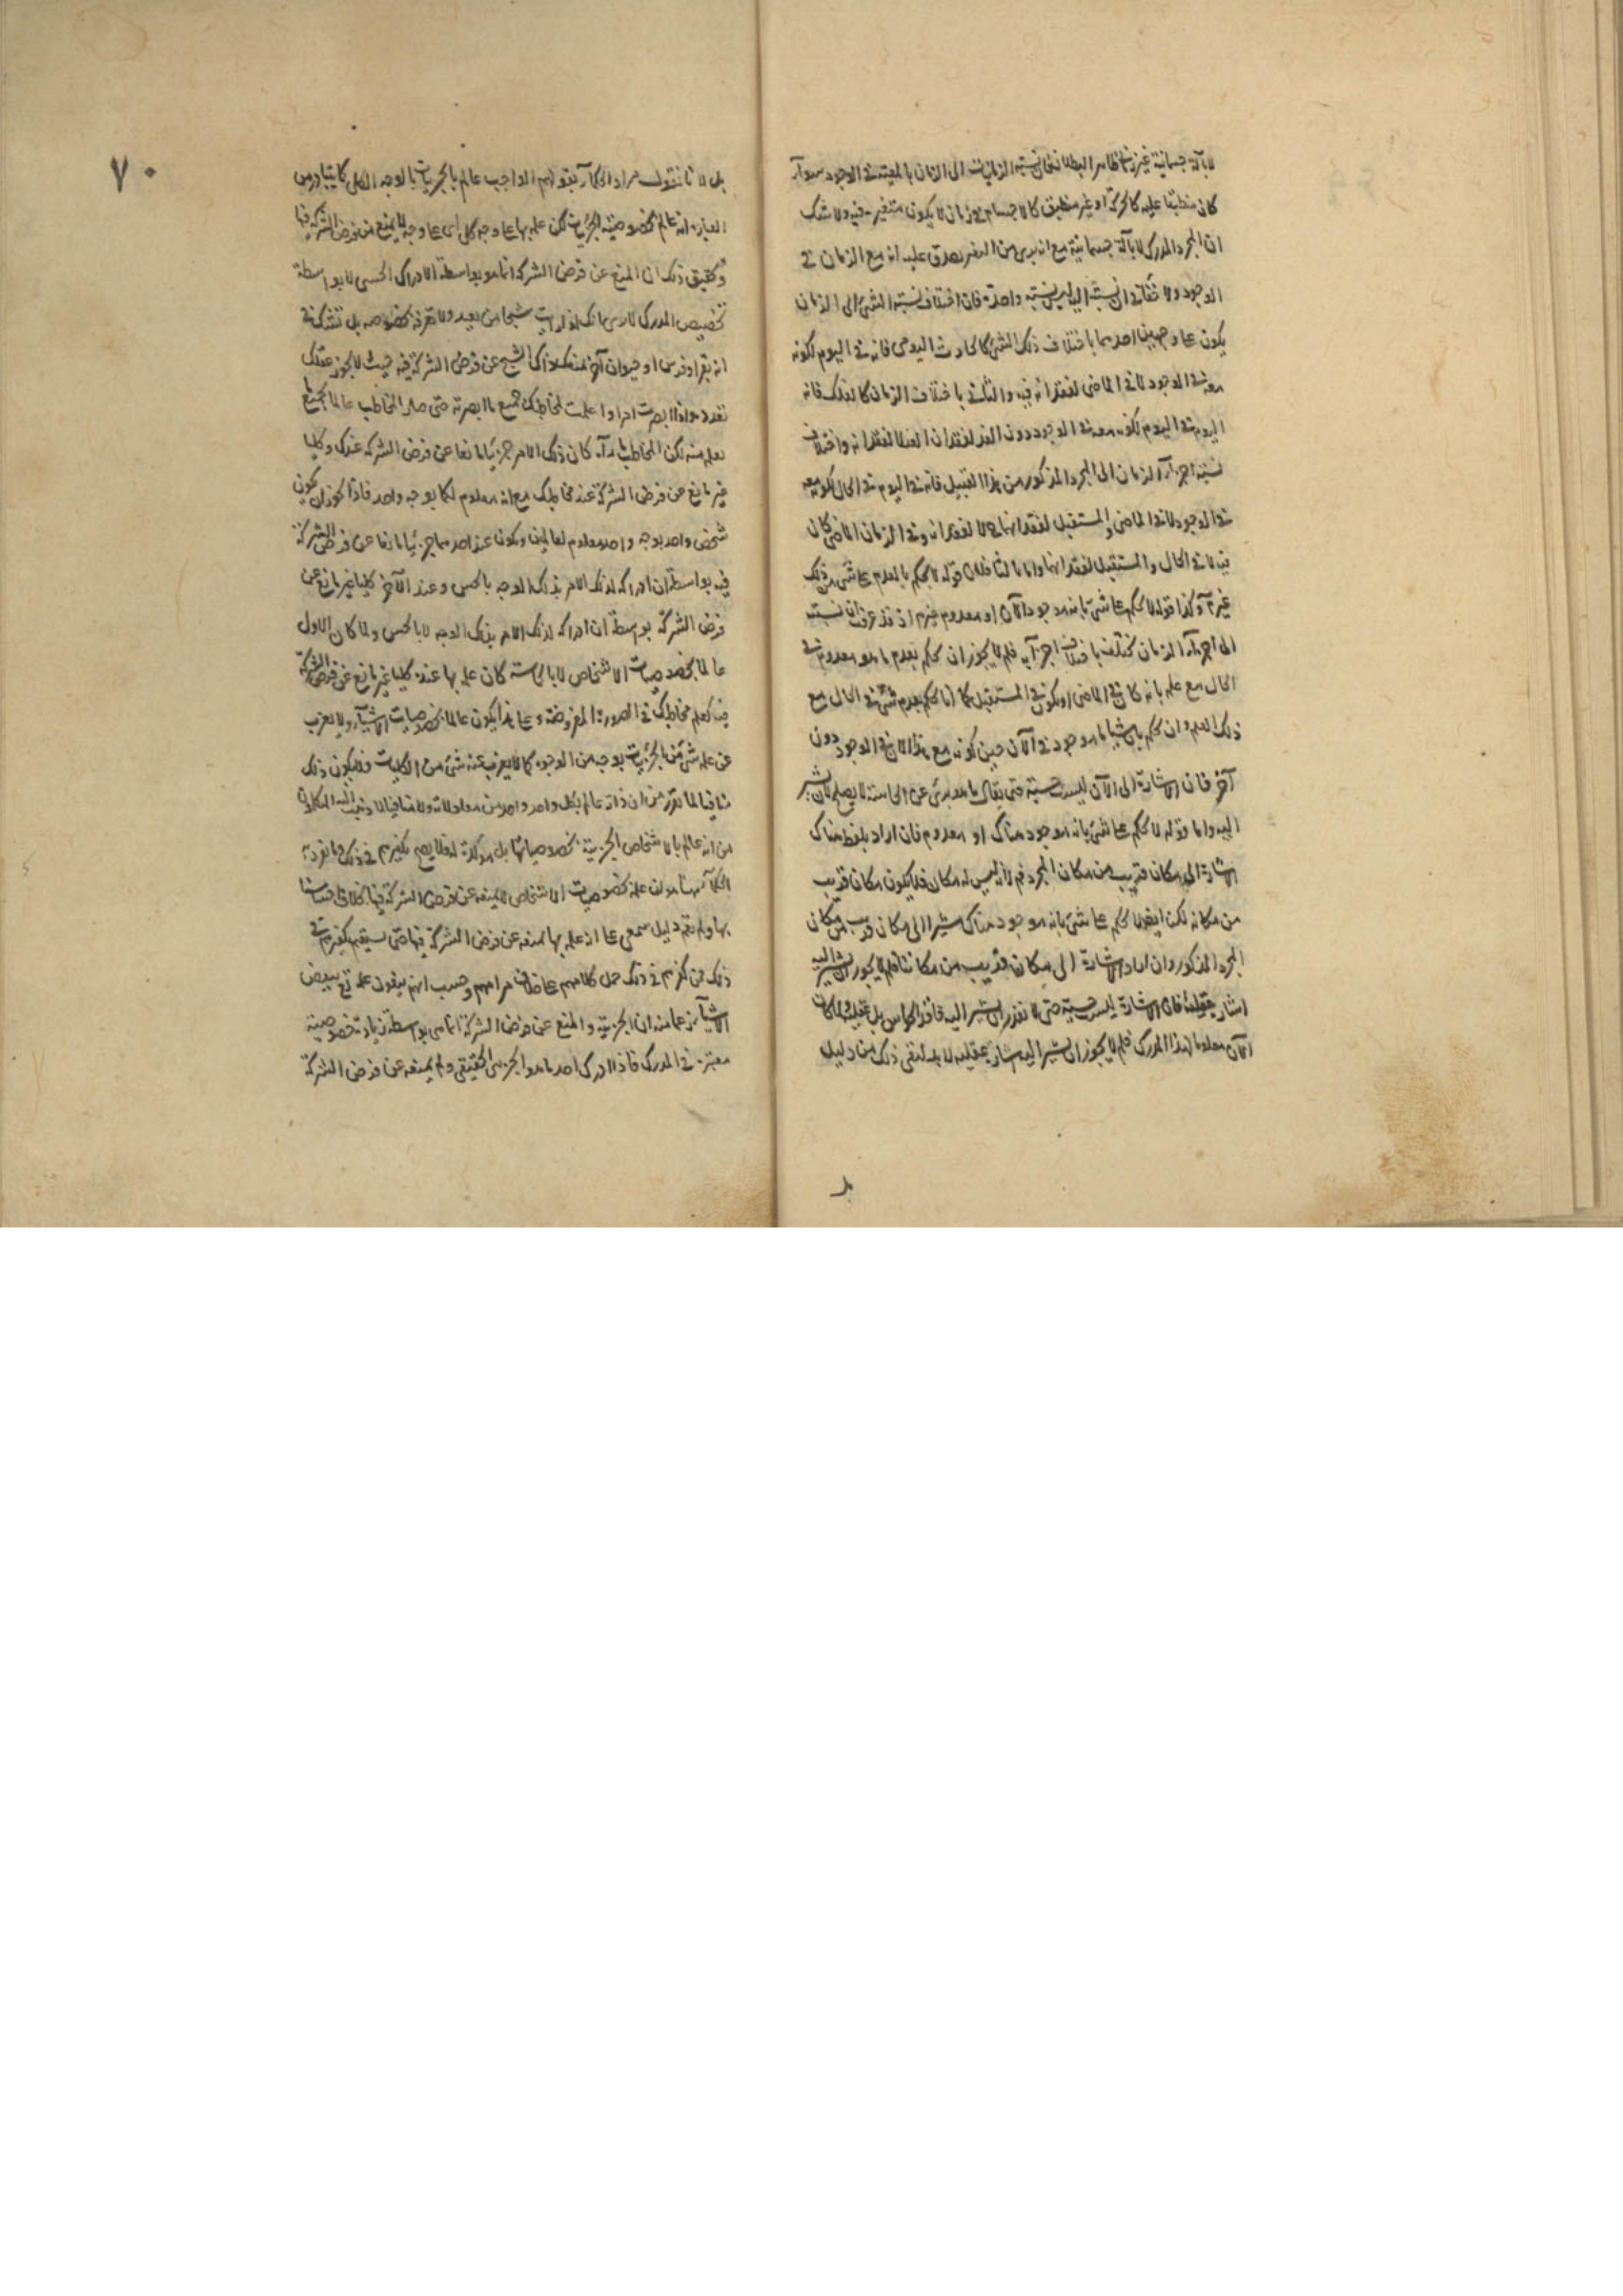 لا بآلة جسمانية غير زماني ظاهر البطلان فان نسبة الزمانيات الى الزمان بالمعية في الوجود سواء
كان منطبقا عليه كالحركة او غير منطبق كالاجسام زمان لا يكون متغير فيه ولا شك
ان المجرد المدرك لا بآلة جسمانية مع انه برى من التغير يصدق عليه انه مع الزمان في
الوجود ولا خفاء في ان نسبته اليه ليس نسبة واحدة فان اختلاف نسبة الشئ الى الزمان
يكون على وجهين احدهما باختلاف ذلك الشئ كالحادث اليومى فانه في اليوم لكونه
معه في الوجود لا في الماضى لفقدانه فيه والثانى باختلاف الزمان كالفلك فانه
اليوم في اليوم لكونه معه في الوجود دون الغد لفقدان الغد لا لفقدانه واختلاف
نسبة اجزاء الزمان الى المجرد المذكور من هذا القبيل فانه في اليوم في الحال لكونه معه
في الوجود لا في الماضى والمستقبل لفقدانهما لا لفقدانه وفي الزمان الماضى كان
فيه لا في الحال والمستقبل لفقدانهما واما ثالثا فلان قوله لا يحكم بالعدم على شئ من ذلك
غير وكذا قوله لا يحكم على شئ بانه موجود الآن او معدوم اذ قد عرفت ان نسبته
الى اجزاء الزمان تختلف باختلاف اجزائه فلم لا يجوز ان يحكم بعدم ما هو معدوم في
الحال مع علمه بانه كان في الماضى او يكون في المستقبل كما انا نحكم بعدم شئ في الحال مع
ذلك العلم وان يحكم بان شيئا ما موجود في الآن حين كونه مع هذا الآن في الوجود دون
آخر فان الاشارة الى الآن ليست حسية حتى يقال ما هو برئ عن الحاسة لا يصلح لان يشير
اليه واما قوله لا يحكم على شئ بانه موجود هناك او معدوم فان اراد بلفظ هناك
الاشارة الى مكان قريب من مكان المجرد فلانه ليس له مكان فلا يكون مكان قريب
من مكانه لكن ايضا لا يحكم على شئ بانه موجود هناك مشيرا الى مكان قريب من مكان
المجرد المذكور وان اراد الاشارة الى مكان قريب من مكاننا فلم لا يجوز ان يشير اليه
اشارة عقلية فان الاشارة ليست حسية حتى لا تقدر ان يشير اليه فاقد الحواس بل عقلية ولما كان
الآن معلوما لهذا المدرك فلم لا يجوز ان يشير اليه اشارة عقلية لا بد لنفى ذلك من دليل
بل
٧٠
بل لانا نقول مراد الحكماء بقولهم الواجب عالم بالجزئيات بالوجه الكلى كما يتبادر من
العبارة انه عالم بخصوصية الجزئيات لكن علمه بها على وجه كلى اى على وجه لا يمنع من فرض الشركة فيها
وتحقيق ذلك ان المنع عن فرض الشركة انما هو بواسطة الادراك الحسى لا بواسطة
تخصيص المدرك الا ترى انك اذا رأيت شبحا من بعيد ولا تعرفه بخصوصه بل تشك في
انه بقر او فرس او حيوان آخر يمنعك ادراك الشبح عن فرض الشركة فيه حيث لا يجوز عقلك
تعدده واذا ابصرت امرا واعلمت مخاطبك جميع ما ابصرته حتى صار المخاطب عالما بجميع ما
تعلمه منه لكن المخاطب ما رآه كان ذلك الامر جزئيا مانعا عن فرض الشركة عندك وكليا
غير مانع عن فرض الشركة عند مخاطبك مع انه معلوم لكما بوجه واحد فاذا يجوز ان يكون
شخص واحد بوجه واحد معلوم لعالمين ويكون عند احدهما جزئيا مانعا عن فرض الشركة
فيه بواسطة ان ادراكه لذلك الامر بذلك الوجه بالحس وعند الآخر كليا غير مانع عن
فرض الشركة بواسطة ان ادراكه لذلك الامر بذلك الوجه لا بالحس ولما كان الاول
عالما بخصوصيات الاشخاص لا بالحاسة كان علمه بها عنده كليا غير مانع عن فرض الشركة
فيه كعلم مخاطبك في الصورة المفروضة وعلى هذا يكون عالما بخصوصيات الاشياء ولا يعزب
عن علمه شئ من الجزئيات بوجه من الوجوه كما لا يعزب عنه شئ من الكليات ولا يكون ذلك
منافيا لما تقرر من ان ذاته عالم بكل واحد واحد من معلولاته ولا منافيا لما ذهب اليه المتكلمون
من انه عالم بالاشخاص الجزئية بخصوصياتها بل مؤكدا له فلا يصح تكفيرهم في ذلك وما تفرد به
الحكماء هنا هو ان علمه بخصوصيات الاشخاص لا يمنعه عن فرض الشركة فيها بخلاف احساسنا
بها ولم يقم دليل سمعى على ان علمه بها يمنعه عن فرض الشركة فيها حتى يستقيم تكفيرهم في
ذلك فمن كفرهم في ذلك حمل كلامهم على خلاف مرامهم وحسب انهم ينفون علمه تع ببعض
الاشياء زعما منه ان الجزئية والمنع عن فرض الشركة انما هى بواسطة زيادة خصوصية
معتبرة في المدرك فاذا ادرك احد ما هو الجزئى الحقيقى ولم يمنعه عن فرض الشركة